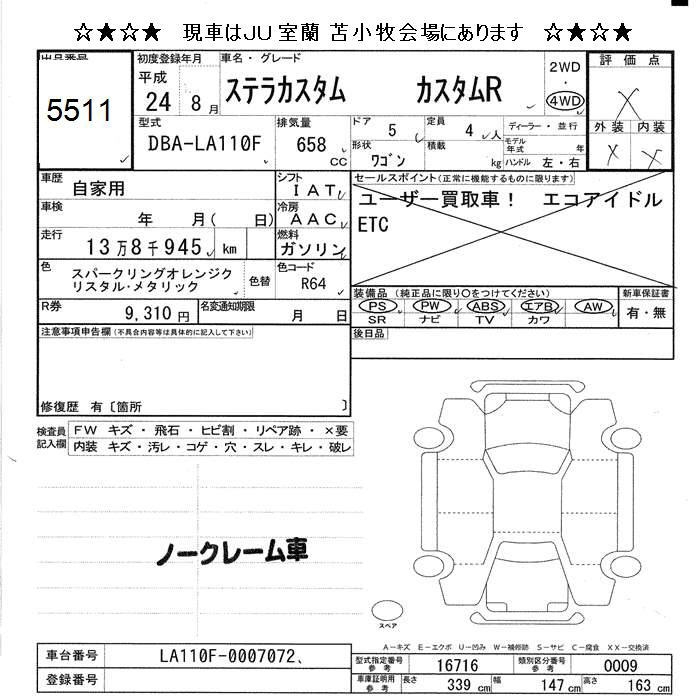 ☆★☆★ 現車はJU室蘭 苫小牧会場にあります ☆★☆★
出品番号
5511
初度登録年月
平成
24 8月
車名・グレード
ステラカスタム カスタムR
2WD
・
4WD
評価点
X
外装 内装
X X
型式
DBA-LA110F
排気量
658
CC
ドア
5
定員
4人
形状
ワゴン
積載
kg
ディーラー・並行
モデル年式 年
ハンドル 左・右
車歴
自家用
シフト
IAT
車検
年 月( 日)
冷房
AAC
走行
13万8千945 km
燃料
ガソリン
色
スパークリングオレンジク
リスタル・メタリック
色替
色コード
R64
R券
9,310円
名変通知期限
月 日
セールスポイント(正常に機能するものに限ります)
ユーザー買取車! エコアイドル
ETC
装備品(純正品に限り○をつけてください)
PS PW ABS エアB AW
SR ナビ TV カワ
新車保証書
有・無
後日品
注意事項申告欄(不具合内容等は具体的に記入して下さい)
修復歴 有〔箇所 〕
検査員
記入欄
FW キズ・飛石・ヒビ割・リペア跡・×要
内装 キズ・汚レ・コゲ・穴・スレ・キレ・破レ
ノークレーム車
スペア
A-キズ E-エクボ U-凹み W-補修跡 S-サビ C-腐食 XX-交換済
車台番号
LA110F-0007072、
登録番号
型式指定番号
参考
16716
類別区分番号
参考
0009
車庫証明用
参考
長さ
339 cm
幅
147 cm
高さ
163 cm